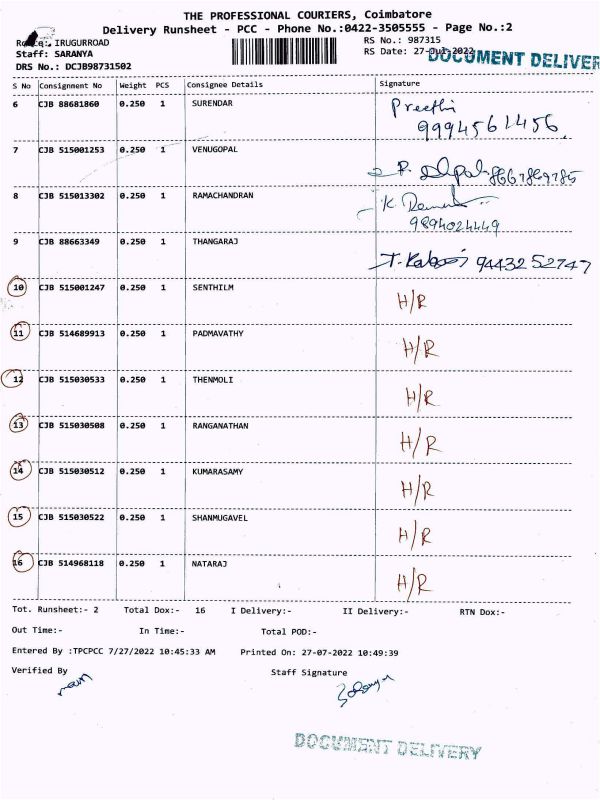 THE PROFESSIONAL COURIERS, Coimbatore
Delivery Runsheet - PCC - Phone No.:0422-3505555 - Page No.:2
Route: IRUGURROAD RS No.: 987315
Staff: SARANYA RS Date: 27-Jul-2022
DOCUMENT DELIVER
DRS No.: DCJB98731502
S No Consignment No Weight PCS Consignee Details Signature
6 CJB 88681860 0.250 1 SURENDAR Preethi
9994561456.
7 CJB 515001253 0.250 1 VENUGOPAL
8 CJB 515013302 0.250 1 RAMACHANDRAN
9894024449
9 CJB 88663349 0.250 1 THANGARAJ
9443252747
10 CJB 515001247 0.250 1 SENTHILM H/R
11 CJB 514689913 0.250 1 PADMAVATHY H/R
12 CJB 515030533 0.250 1 THENMOLI H/R
13 CJB 515030508 0.250 1 RANGANATHAN H/R
14 CJB 515030512 0.250 1 KUMARASAMY H/R
15 CJB 515030522 0.250 1 SHANMUGAVEL H/R
16 CJB 514968118 0.250 1 NATARAJ H/R
Tot. Runsheet:- 2 Total Dox:- 16 I Delivery:- II Delivery:- RTN Dox:-
Out Time:- In Time:- Total POD:-
Entered By :TPCPCC 7/27/2022 10:45:33 AM Printed On: 27-07-2022 10:49:39
Verified By Staff Signature
DOCUMENT DELIVERY